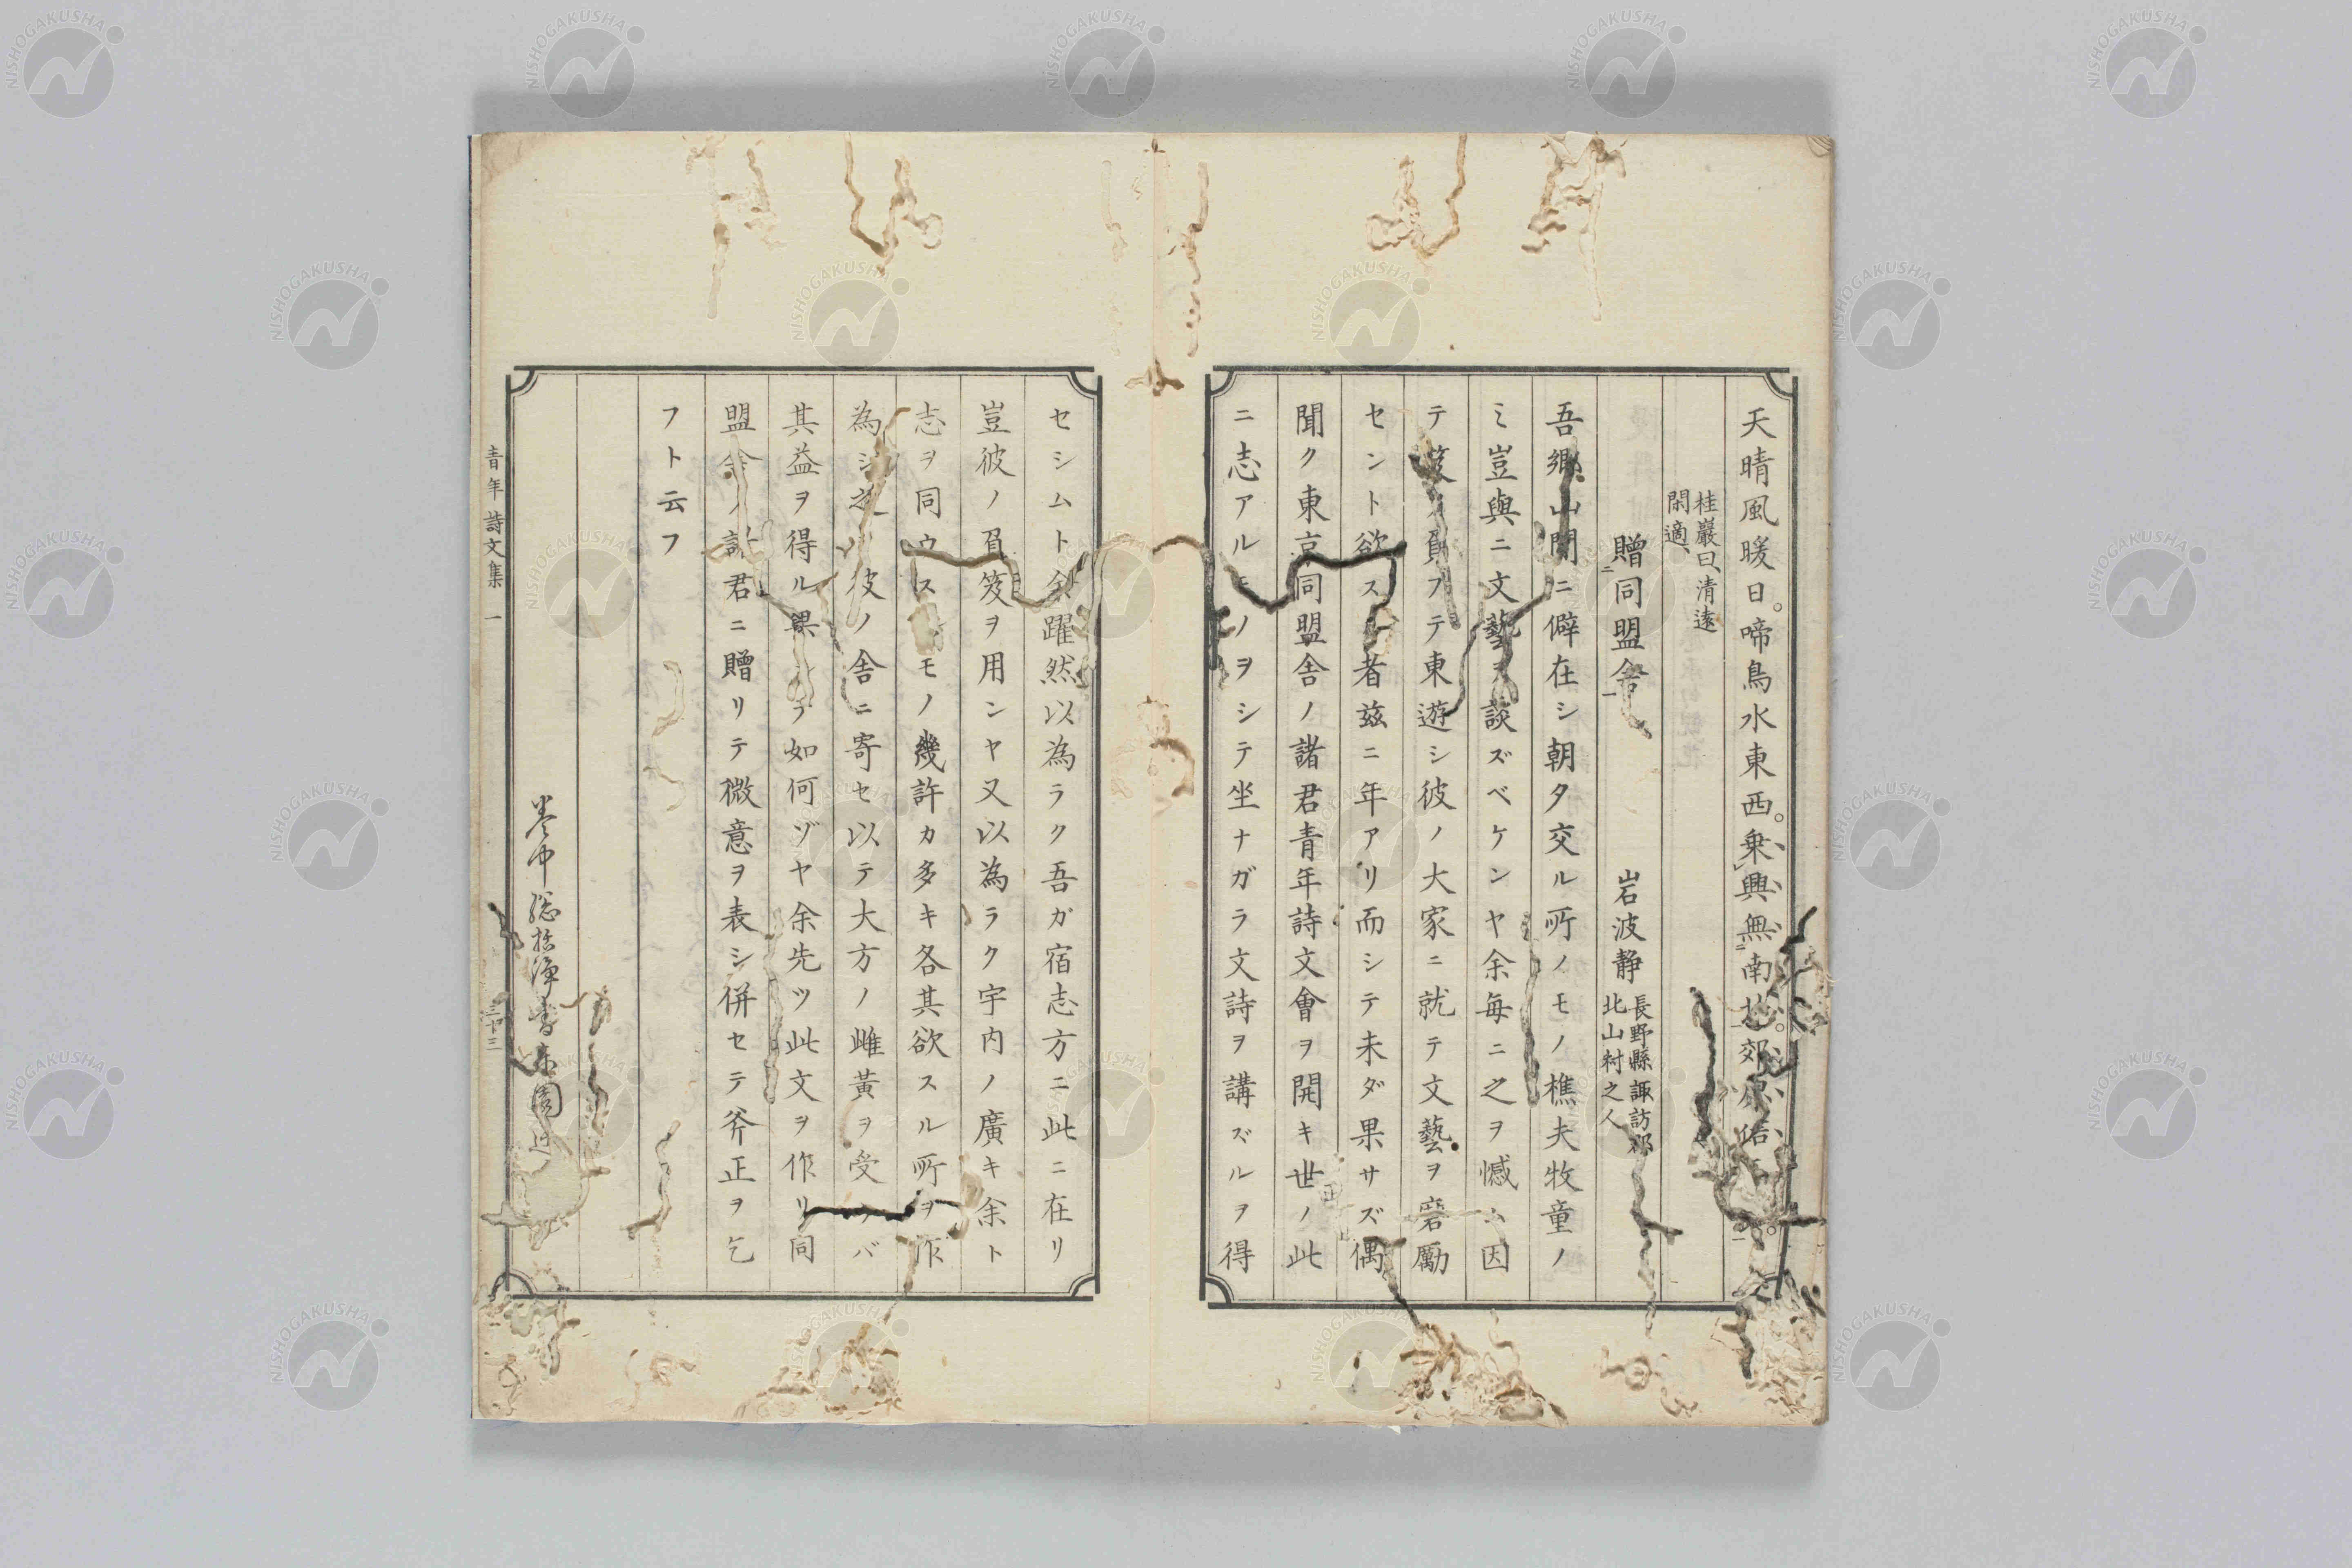 天晴風暖日。啼鳥水東西。乗興無南北。郊原
桂巖曰、清遠
閑適、
贈同盟舎 岩波静 長野縣諏訪郡
北山村之人
吾郷山間ニ僻在シ朝夕交ル所ノモノ樵夫牧童ノ
ミ豈與ニ文藝ヲ談ズベケンヤ余毎ニ之ヲ憾ム因
テ笈ヲ負フテ東遊シ彼ノ大家ニ就テ文藝ヲ磨勵
セント欲スル者茲ニ年アリ而シテ未ダ果サズ偶
聞ク東京同盟舎ノ諸君青年詩文會ヲ開キ世ノ此
ニ志アルモノヲシテ坐ナガラ文詩ヲ講ズルヲ得
セシムト余躍然以為ラク吾ガ宿志方ニ此ニ在リ
豈彼ノ負笈ヲ用ンヤ又以為ラク宇内ノ廣キ余ト
志ヲ同ウスルモノ幾許カ多キ各其欲スル所ヲ作
為シ之彼ノ舎ニ寄セ以テ大方ノ雌黄ヲ受ケバ
其益ヲ得ル果シテ如何ゾヤ余先ツ此文ヲ作リ同
盟舎ノ諸君ニ贈リテ微意ヲ表シ併セテ斧正ヲ乞
フト云フ
巻中総括浄書
青年詩文集 一 三十三
NISHOGAKUSHA